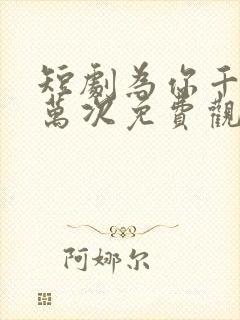 短劇為你千
萬次免費觀
阿娜尔